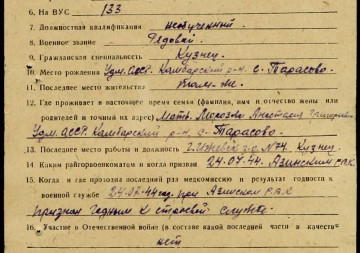 6. На ВУС 133
7. Должностная квалификация необученный
8. Военное звание Рядовой
9. Гражданская специальность Кузнец
10. Место рождения Удм. АССР Камбарский р-н. с. Тарасово
11. Последнее место жительства
12. Где проживает в настоящее время семья (фамилия, имя и отчество жены или
родителей и точный их адрес) Мать. Морозова Анастасия
Удм. АССР Камбарский р-н. с. Тарасово.
13. Последнее место работы и должность г. Ижевск №74 Кузнец.
14. Каким райгорвоенкоматом и когда призван 24.07.44. Азинским РВК
15. Когда и где проходил последний раз медкомиссию и результат годности к
военной службе 24.07.44 год. при Азинском РВК
признан годным к строевой службе.
16. Участие в Отечественной войне (в составе какой последней части и качестве
нет